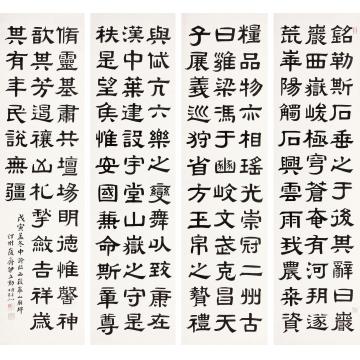 銘勒斯石垂之于後其辭曰巖
巖西嶽峻極穹蒼奄有河朔遂
荒華陽觸石興雲雨我農桑資
糧品物亦相瑤光崇冠二州古
曰雍梁馮于豳岐文武克昌天
子展義巡狩省方玉帛之贄禮
與岱亢六樂之變舞以致康在
漢中葉建設宇堂山嶽之守是
秩是望侯惟安國兼命斯章尊
脩靈基肅共壇場明德惟馨神
歆其芳遏禳凶札揫斂吉祥歲
其有年民說無疆
戊寅孟冬中浣臨西嶽華山廟碑